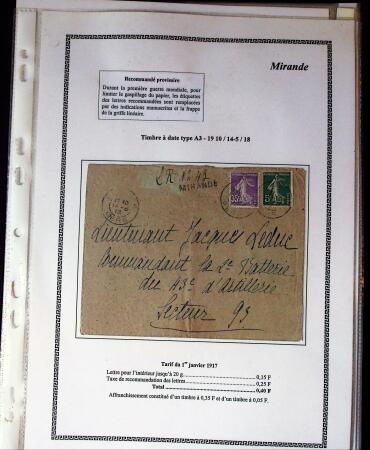 Mirande
Recommandé provisoire
Durant la première guerre mondiale, pour
limiter le gaspillage du papier, les étiquettes
des lettres recommandées sont remplacées
par des indications manuscrites et la frappe
de la griffe linéaire.
Timbre à date type A3 - 19 10 / 14-5 / 18
MIRANDE
Lieutenant Jacques Leduc
Commandant la 2e Batterie
du 43e d'Artillerie
Secteur 93
Tarif du 1er janvier 1917
Lettre pour l'intérieur jusqu'à 20 g. 0,15 F
Taxe de recommandation des lettres 0,25 F
Total 0,40 F
Affranchissement constitué d'un timbre à 0,35 F et d'un timbre à 0,05 F.